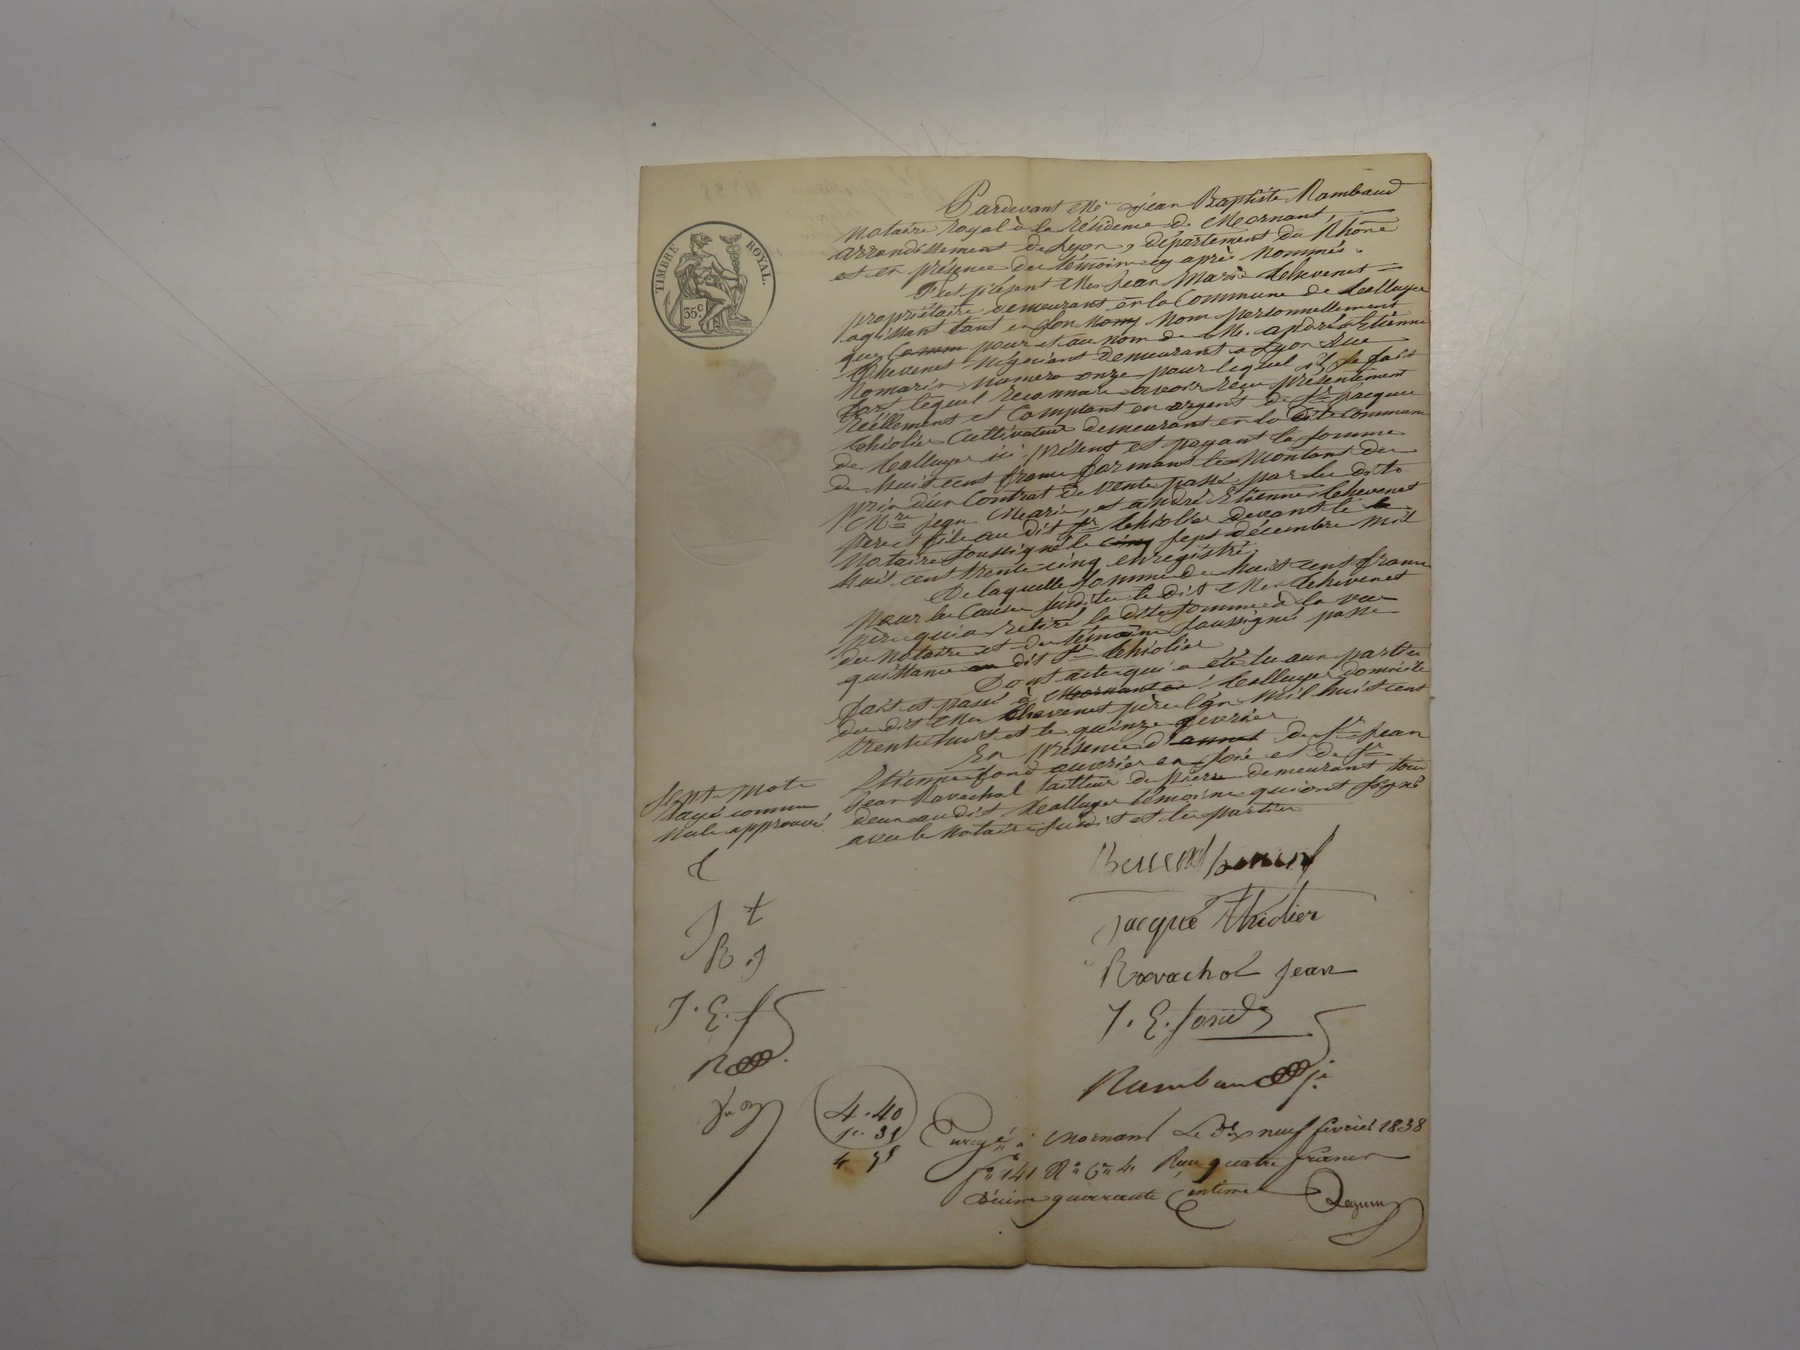 TIMBRE ROYAL.
35c
Pardevant Me Jean Baptiste Rambaud
notaire royal à la résidence de Mornant
arrondissement de Lyon, département du Rhône
et en présence des témoins cy après nommés.
Est présent Mr Jean Marie Chevenet
propriétaire demeurant en la Commune de
agissant tant en son nom personnellement
que pour et au nom de Mr. andré Etienne
Chevenet négociant demeurant à Lyon Rue
Romarin numero onze pour lequel il se fait
fort lequel reconnait avoir reçu présentement
réellement et comptant en argent de Sr Jacques
Thiolier Cultivateur demeurant en la dite commune
de ici présent et payant la somme
de huit cens francs formant le montant du
prix d'un Contrat de vente passé par les dits
Mrs jean Marie, et andré Etienne Chevenet
père et fils au dit Sr Thiolier devant le
notaire soussigné le cinq sept décembre mil
huit cent trente cinq enregistré.
De laquelle somme de huit cens francs
pour les Causes susdites le dit Mr Chevenet
père qui a retiré la dite somme à la vue
du notaire et des témoins soussignés passe
quittance au dit Sr Thiolier
Dont acte qui a été lu aux parties
fait et passé à Mornant en domicile
du dit Mr Chevenet père l'an mil huit cent
trente huit et le quinze fevrier
En présence d de Sr Jean
Etienne fond ouvrier en soie et de Sr
Jean Ravachol tailleur de pierre demeurant tous
deux au dit témoins qui ont signé
avec le notaire susdit et les parties
Sept mots
rayé comme
nuls approuvé.
Jacque Thiolier
Ravachol Jean
J. E. fond
Rambaud
J t
R. J
J. E. f
R
4. 40
Enregé à Mornant Le dix neuf février 1838
fo 141 Ro Cse 4. Reçu quatre francs
décime quarante Centimes